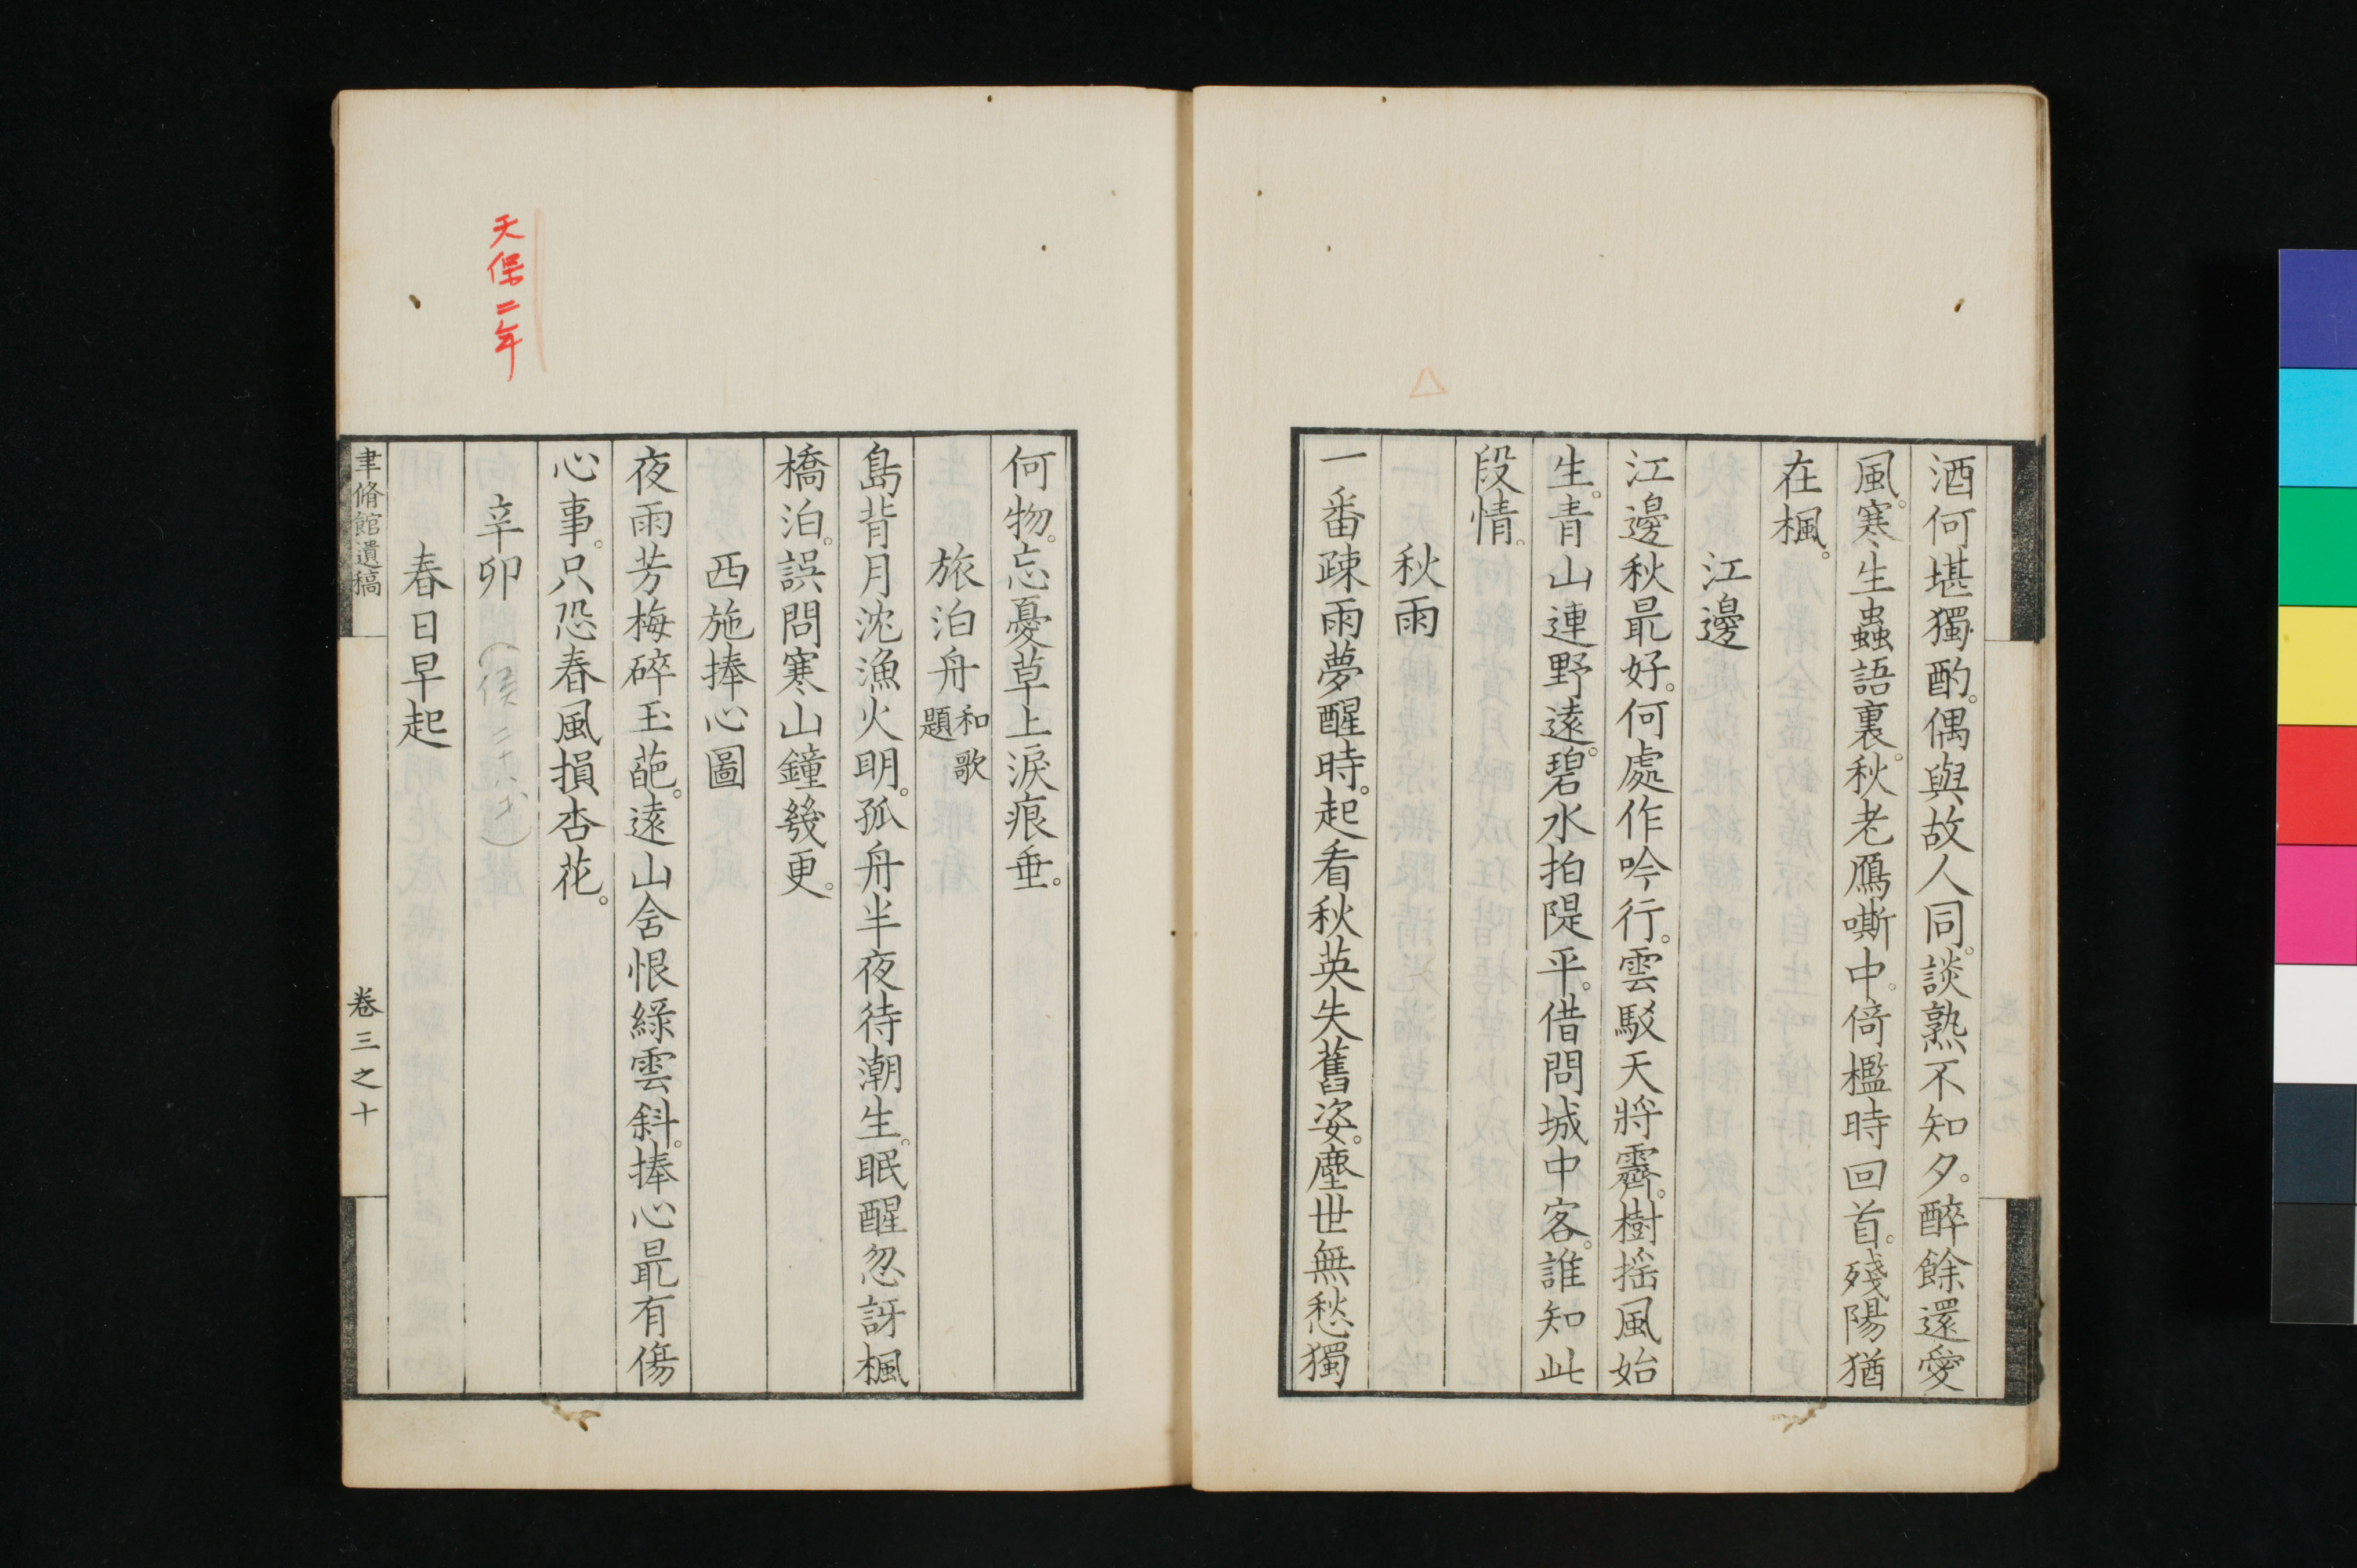 酒何堪獨酌。偶與故人同。談熟不知夕。醉餘還愛
風。寒生蟲語裏。秋老鴈嘶中。倚檻時回首。殘陽猶
在楓。
江邊
江邊秋最好。何處作吟行。雲駁天將霽。樹揺風始
生。青山連野遠。碧水拍隄平。借問城中客。誰知此
段情。
秋雨
一番疎雨夢醒時。起看秋英失舊姿。塵世無愁獨
何物。忘憂草上淚痕垂。
旅泊舟 和歌題
島背月沈漁火明。孤舟半夜待潮生。眠醒忽訝楓
橋泊。誤問寒山鐘幾更。
西施捧心圖
夜雨芳梅碎玉葩。遠山含恨綠雲斜。捧心最有傷
心事。只恐春風損杏花。
天保二年
辛卯 (侯二十八才)
春日早起
聿脩館遺稿
卷三之十